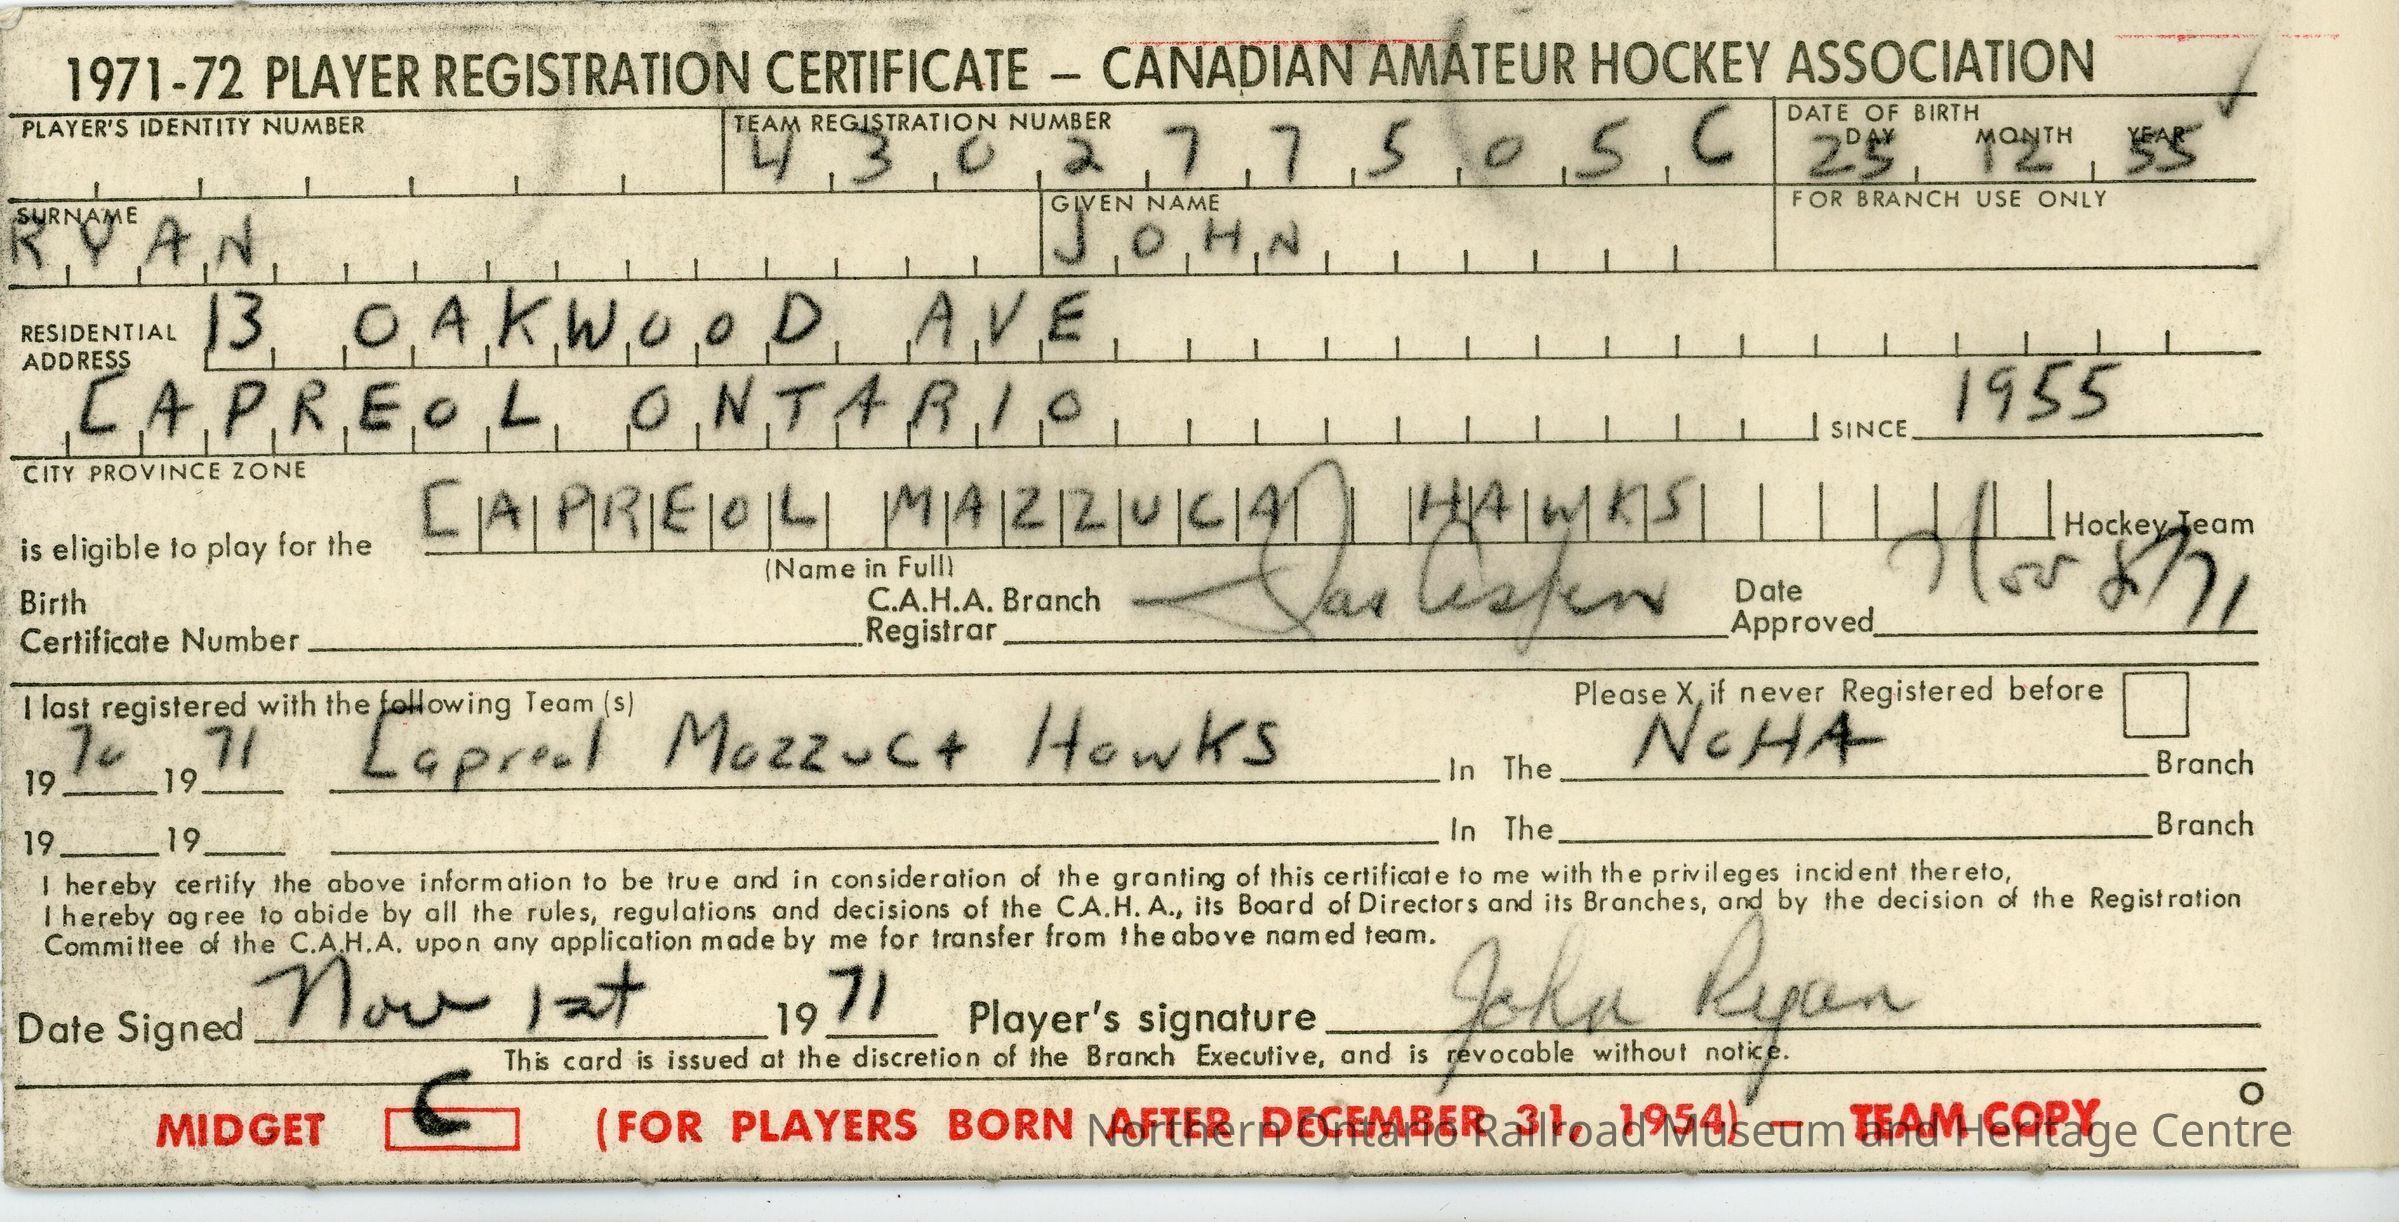 1971-72 PLAYER REGISTRATION CERTIFICATE — CANADIAN AMATEUR HOCKEY ASSOCIATION
PLAYER'S IDENTITY NUMBER TEAM REGISTRATION NUMBER DATE OF BIRTH
DAY MONTH YEAR
430277505C 25 12 55
SURNAME GIVEN NAME FOR BRANCH USE ONLY
RYAN JOHN
RESIDENTIAL ADDRESS 13 OAKWOOD AVE
CAPREOL ONTARIO SINCE 1955
CITY PROVINCE ZONE
is eligible to play for the CAPREOL MAZZUCA HAWKS Hockey Team
(Name in Full)
Birth Certificate Number C.A.H.A. Branch Registrar Date Approved Nov 8/71
I last registered with the following Team (s) Please X if never Registered before
1970 1971 Capreol Mazzuca Hawks In The NOHA Branch
19 19 In The Branch
I hereby certify the above information to be true and in consideration of the granting of this certificate to me with the privileges incident thereto,
I hereby agree to abide by all the rules, regulations and decisions of the C.A.H.A., its Board of Directors and its Branches, and by the decision of the Registration
Committee of the C.A.H.A. upon any application made by me for transfer from the above named team.
Date Signed Nov 1st 1971 Player's signature John Ryan
This card is issued at the discretion of the Branch Executive, and is revocable without notice.
MIDGET C (FOR PLAYERS BORN AFTER DECEMBER 31, 1954) — TEAM COPY
Northern Ontario Railroad Museum and Heritage Centre